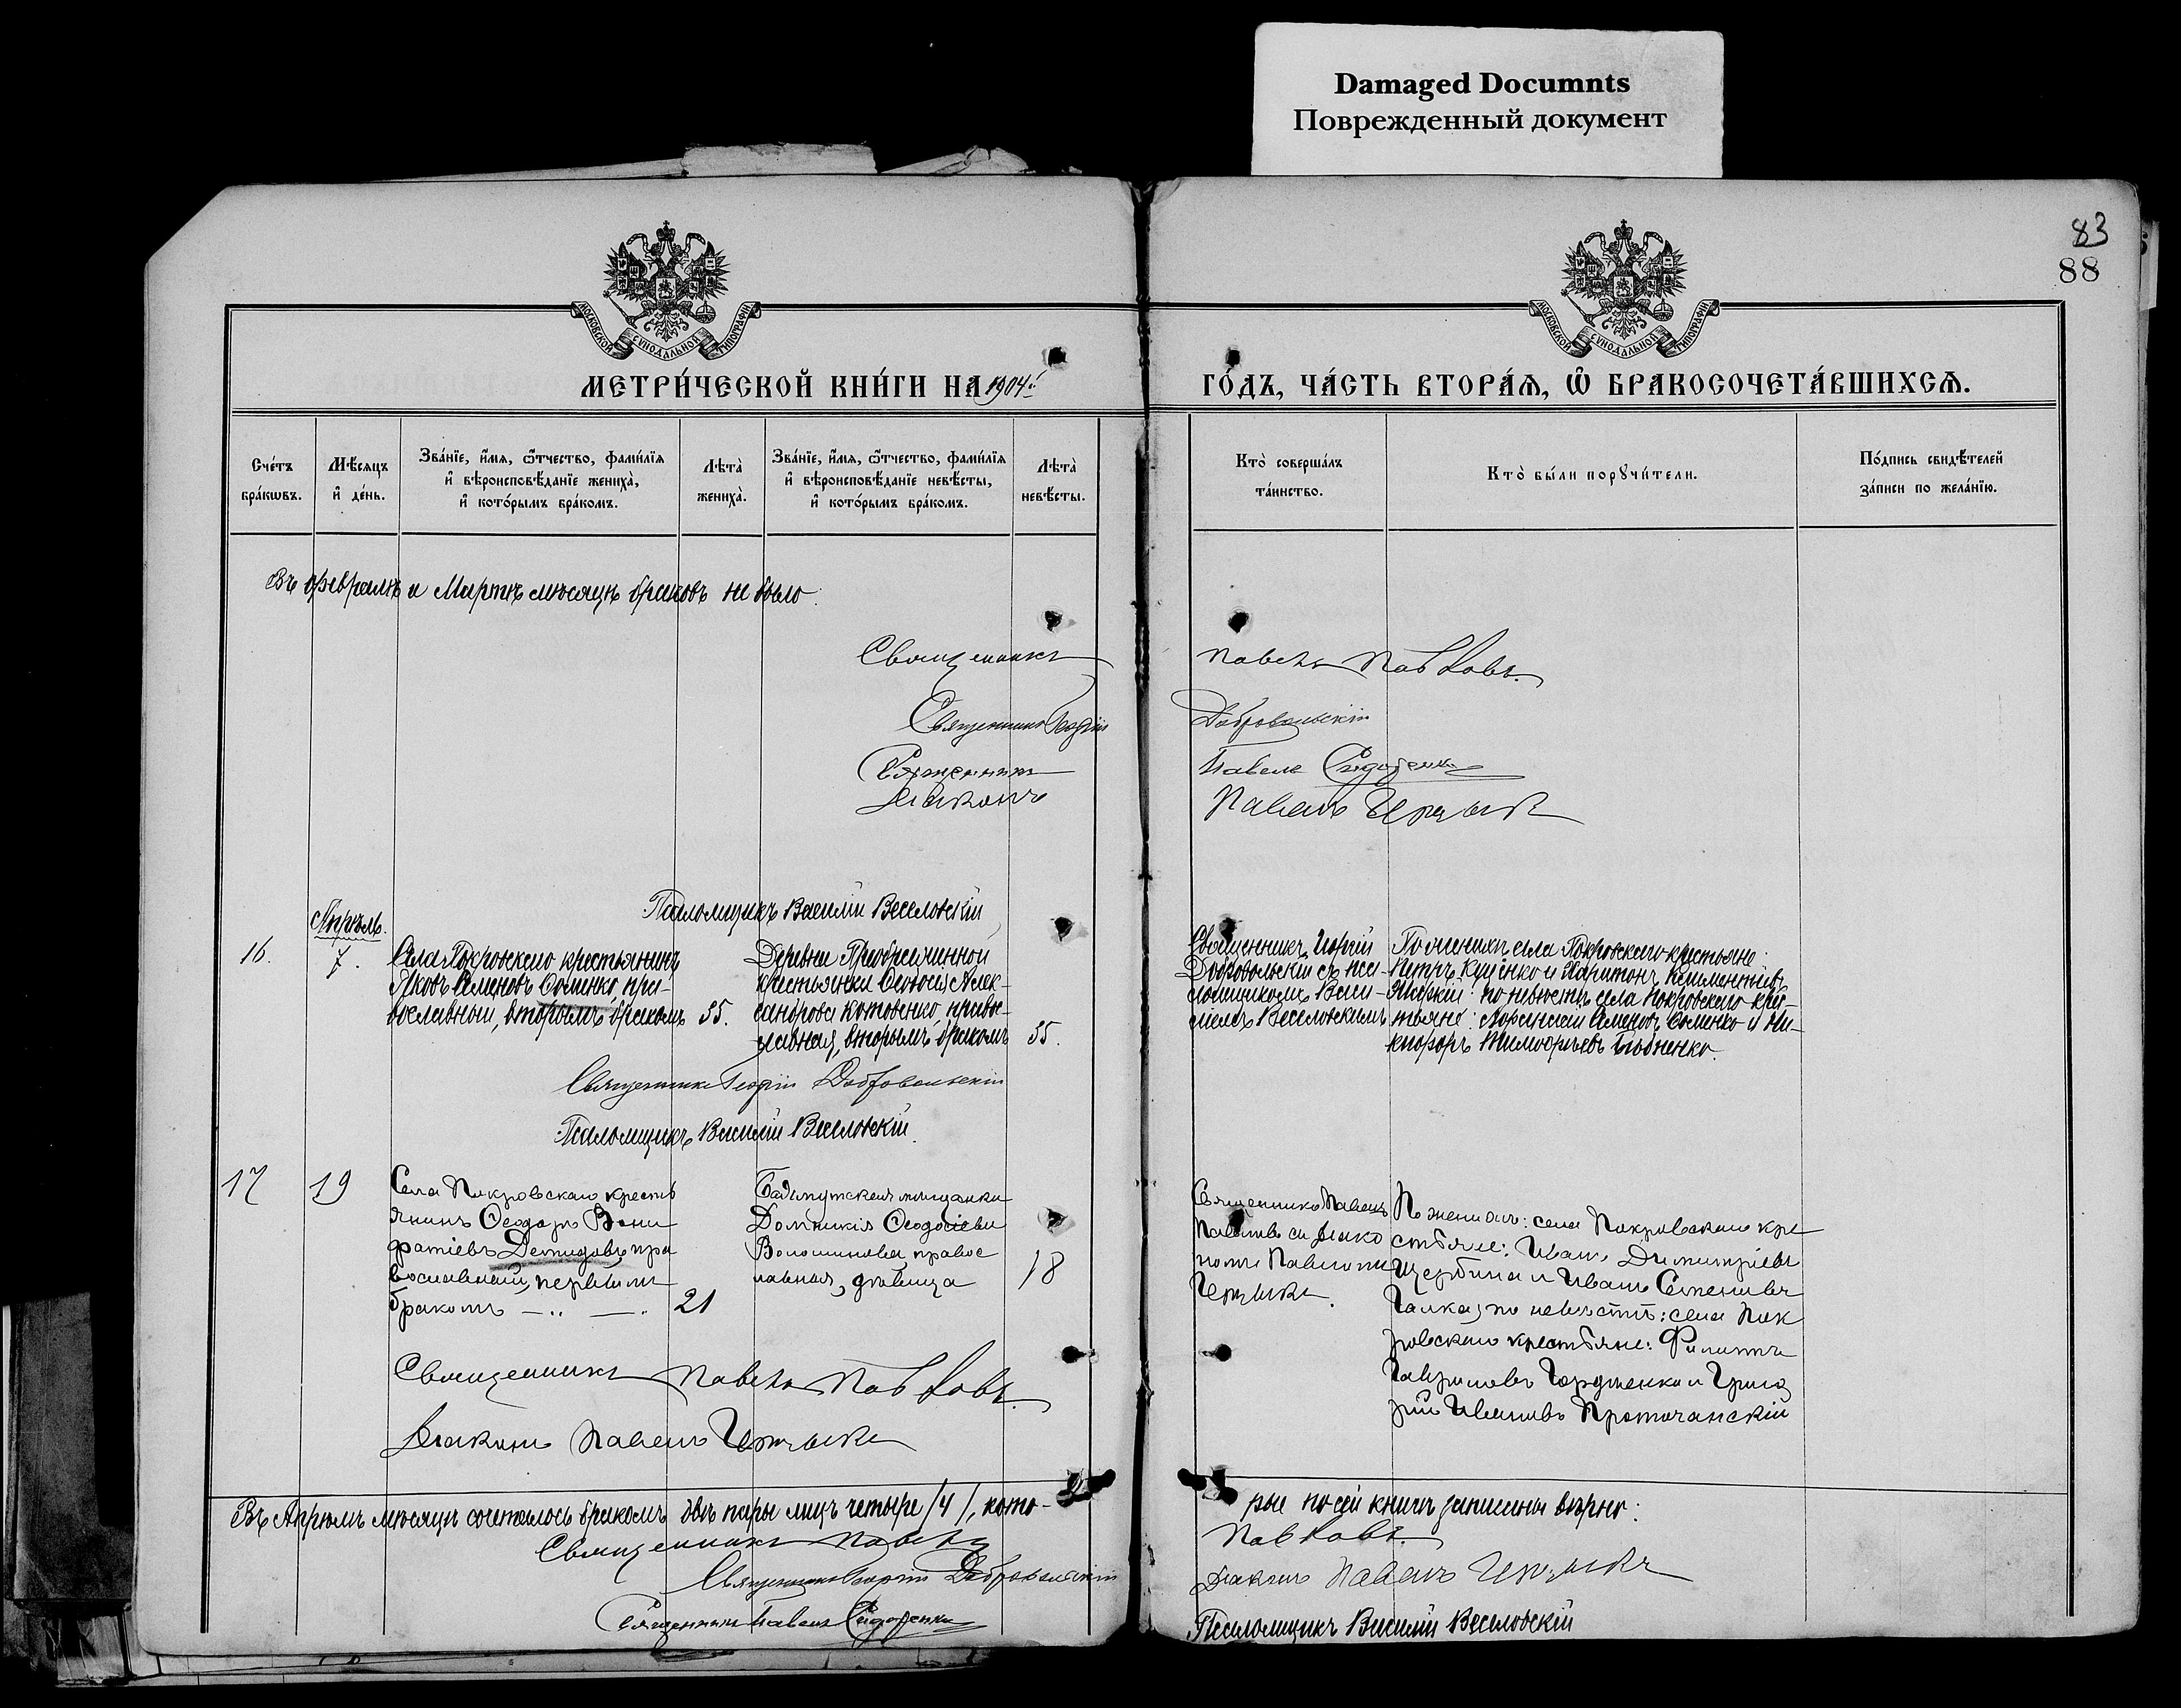 Damaged Documnts
Поврежденный документ
83
88
МОСКОВСКОЙ СѴНОДАЛЬНОЙ ТИПОГРАФІИ
МОСКОВСКОЙ СѴНОДАЛЬНОЙ ТИПОГРАФІИ
МЕТРИ́ЧЕСКОЙ КНИ́ГИ НА 1904й
ГО́ДЪ, ЧА́СТЬ ВТОРА́Ѧ, Ѡ҆ БРАКОСОЧЕТА́ВШИХСѦ.
Сче́тъ
бра́кωвъ.
Мѣ́сяцъ
и҆ де́нь.
Зва́нїе, и҆́мя, ѻ҆́тчество, фами́лїя
и҆ вѣроисповѣ́данїе жениха̀,
и҆ кото́рымъ бра́комъ.
Лѣта̀
жениха̀.
Зва́нїе, и҆́мя, ѻ҆́тчество, фами́лїя
и҆ вѣроисповѣ́данїе невѣ́сты,
и҆ кото́рымъ бра́комъ.
Лѣта̀
невѣ́сты.
Кто̀ соверша́лъ
та́инство.
Кто̀ бы́ли порꙋчи́тели.
По́дпись свидѣ́телей
за́писи по жела́нїю.
Въ февралѣ и Мартѣ мѣсяцѣ браковъ не было.
Священникъ Павелъ Павловъ.
Священникъ Георгій Добровольскій
Священникъ Павелъ Сидоренко
Діаконъ Павелъ
Псаломщикъ Василій Веселовскій
Апрѣль.
16.
7.
Села Покровскаго крестьянинъ
Яковъ Семеновъ Соменко, пра-
вославный, вторымъ бракомъ
35.
Деревни Преображенной
крестьянка Ѳеодосія Алек-
сандрова Котовенко, правос-
лавная, вторымъ бракомъ
35.
Священникъ Георгій
Добровольскій съ пса-
ломщикомъ Васи-
ліемъ Веселовскимъ
По женихѣ села Покровскаго крестьяне:
Петръ Куценко и Харитонъ Климентіевъ
по невѣстѣ села Покровскаго крес-
тьяне: Семеновъ Соменко и Ни-
кифоръ Тимофѣевъ
Священникъ Георгій Добровольскій
Псаломщикъ Василій Веселовскій.
17
19
Села Покровскаго кресть
янинъ Ѳеодоръ Вони
фатіевъ Демидовъ, пра
вославный, первымъ
бракомъ — „ — „
21
мѣщанка
Домникія Ѳеодосіева
Волошинова, правос
лавная, дѣвица
18
Священникъ Павелъ
Павловъ съ діако
номъ Павломъ
По женихѣ: села Покровскаго кре
стьяне: Иванъ Димитріевъ
Щербина и Иванъ Семеновъ
Галка; по невѣстѣ: села Пок
ровскаго крестьяне: Филиппъ
Гавриловъ Гордіенко и Григо
рій Ивановъ Проточанскій
Священникъ Павелъ Павловъ.
Діаконъ Павелъ
Въ Апрѣлѣ мѣсяцѣ сочеталось бракомъ двѣ пары лицъ четыре /4/, кото-
рые по сей книгѣ записаны вѣрно:
Священникъ Павелъ Павловъ.
Священникъ Георгій Добровольскій
Діаконъ Павелъ
Священникъ Павелъ Сидоренко
Псаломщикъ Василій Веселовскій